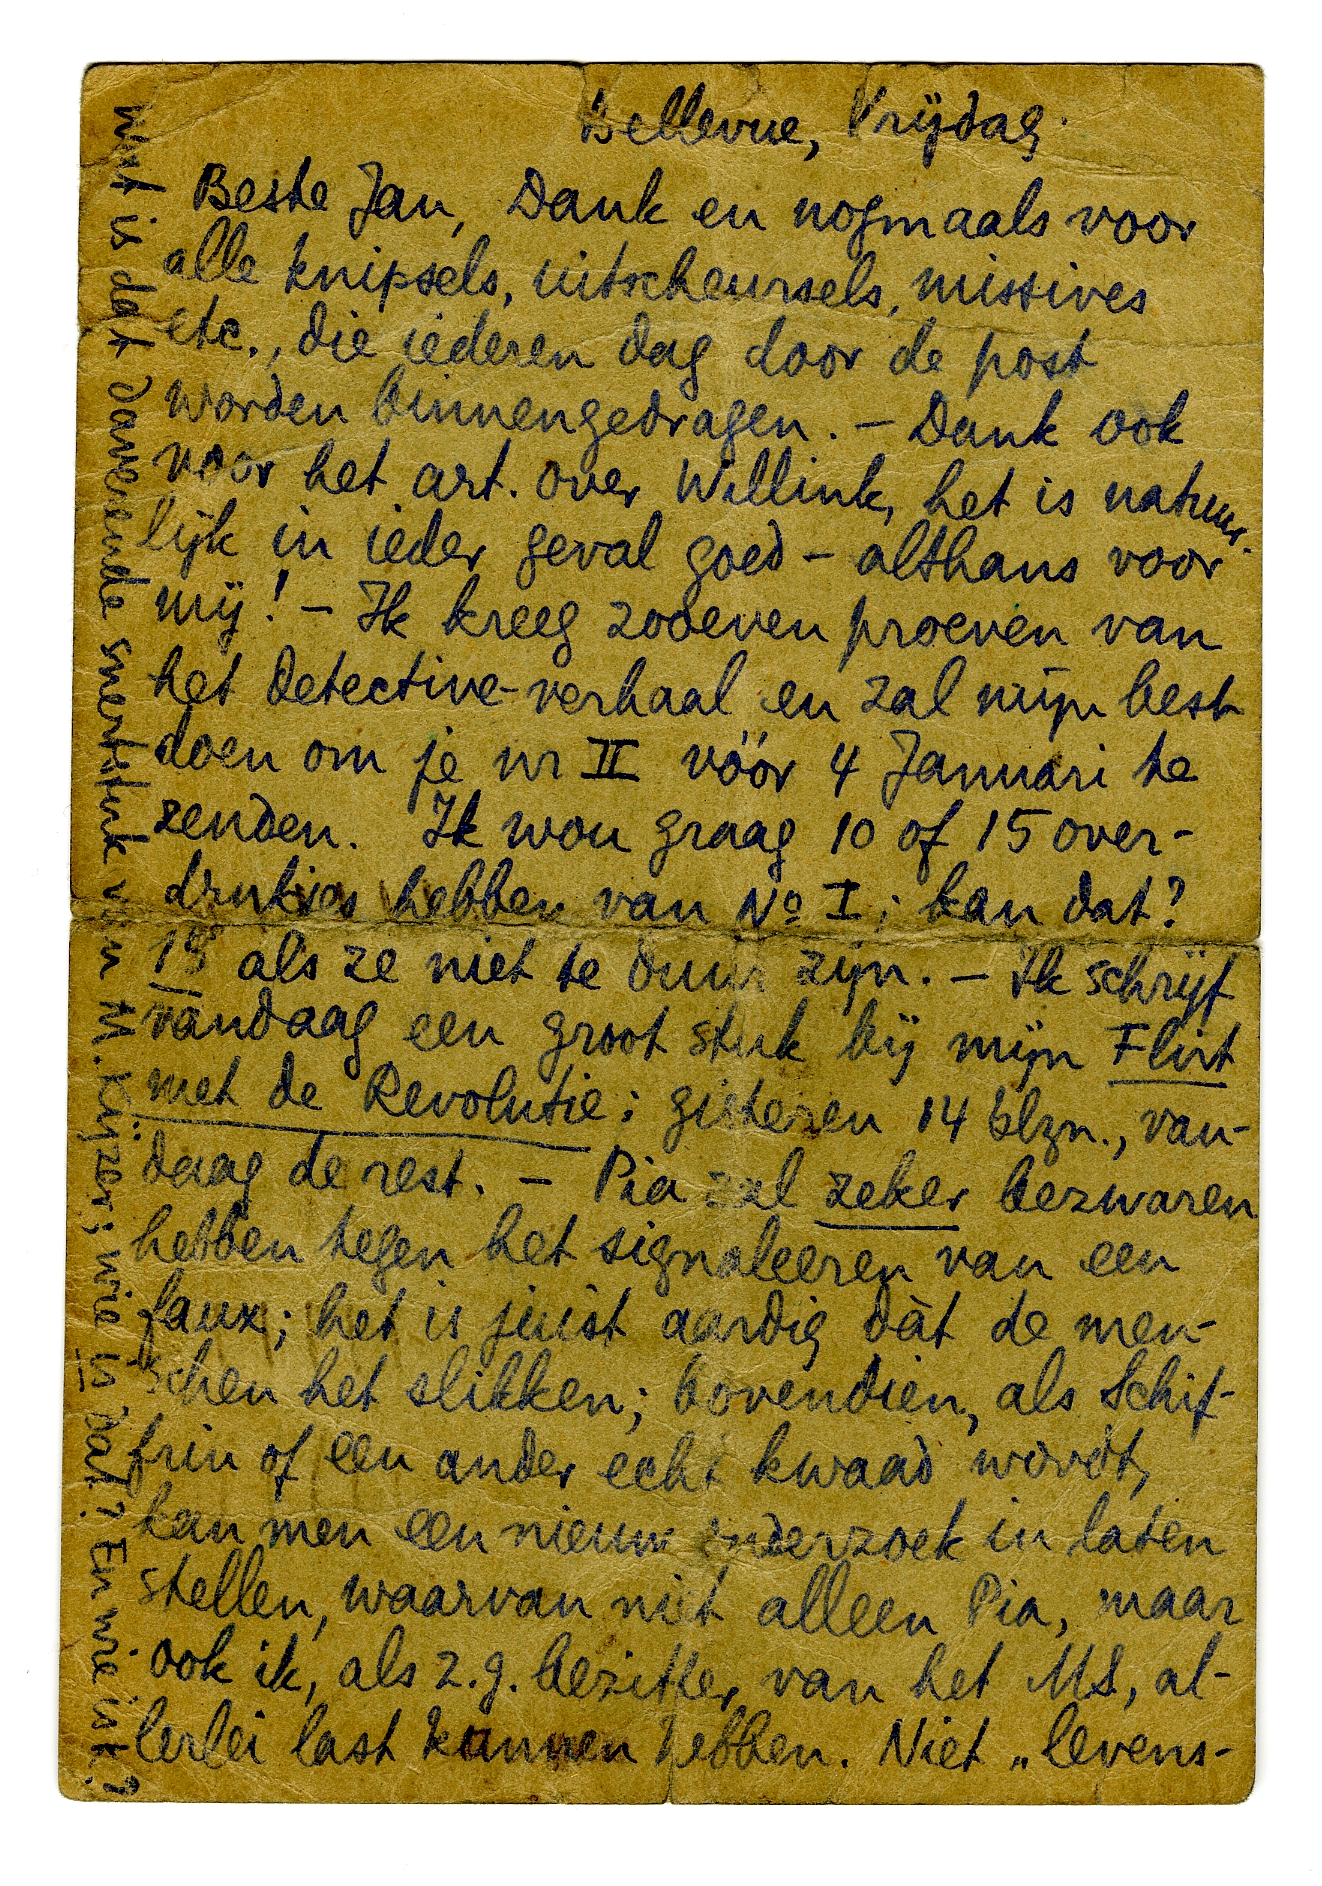 Bellevue, Vrijdag.
Beste Jan, Dank en nogmaals voor
alle knipsels, uitscheursels, missives
etc., die iederen dag door de post
worden binnengedragen. – Dank ook
voor het art. over Willink, het is natuur-
lijk in ieder geval goed – althans voor
mij! – Ik kreeg zooeven proeven van
het detective-verhaal en zal mijn best
doen om je nr II vóór 4 Januari te
zenden. Ik wou graag 10 of 15 over-
drukjes hebben van No I; kan dat?
15 als ze niet te duur zijn. – Ik schrijf
vandaag een groot stuk bij mijn Flirt
met de Revolutie; gisteren 14 blzn., van-
daag de rest. – Pia zal zeker bezwaren
hebben tegen het signaleeren van een
faux; het is juist aardig dàt de men-
schen het slikken; bovendien, als Schif-
frin of een ander echt kwaad wordt,
kan men een nieuw onderzoek in laten
stellen, waarvan niet alleen Pia, maar
ook ik, als z.g. bezitter van het MS, al-
lerlei last kunnen hebben. Niet „levens-
Wat is dat daverende snertstuk van M. Kijzer; wie is dat? En wie is t.?